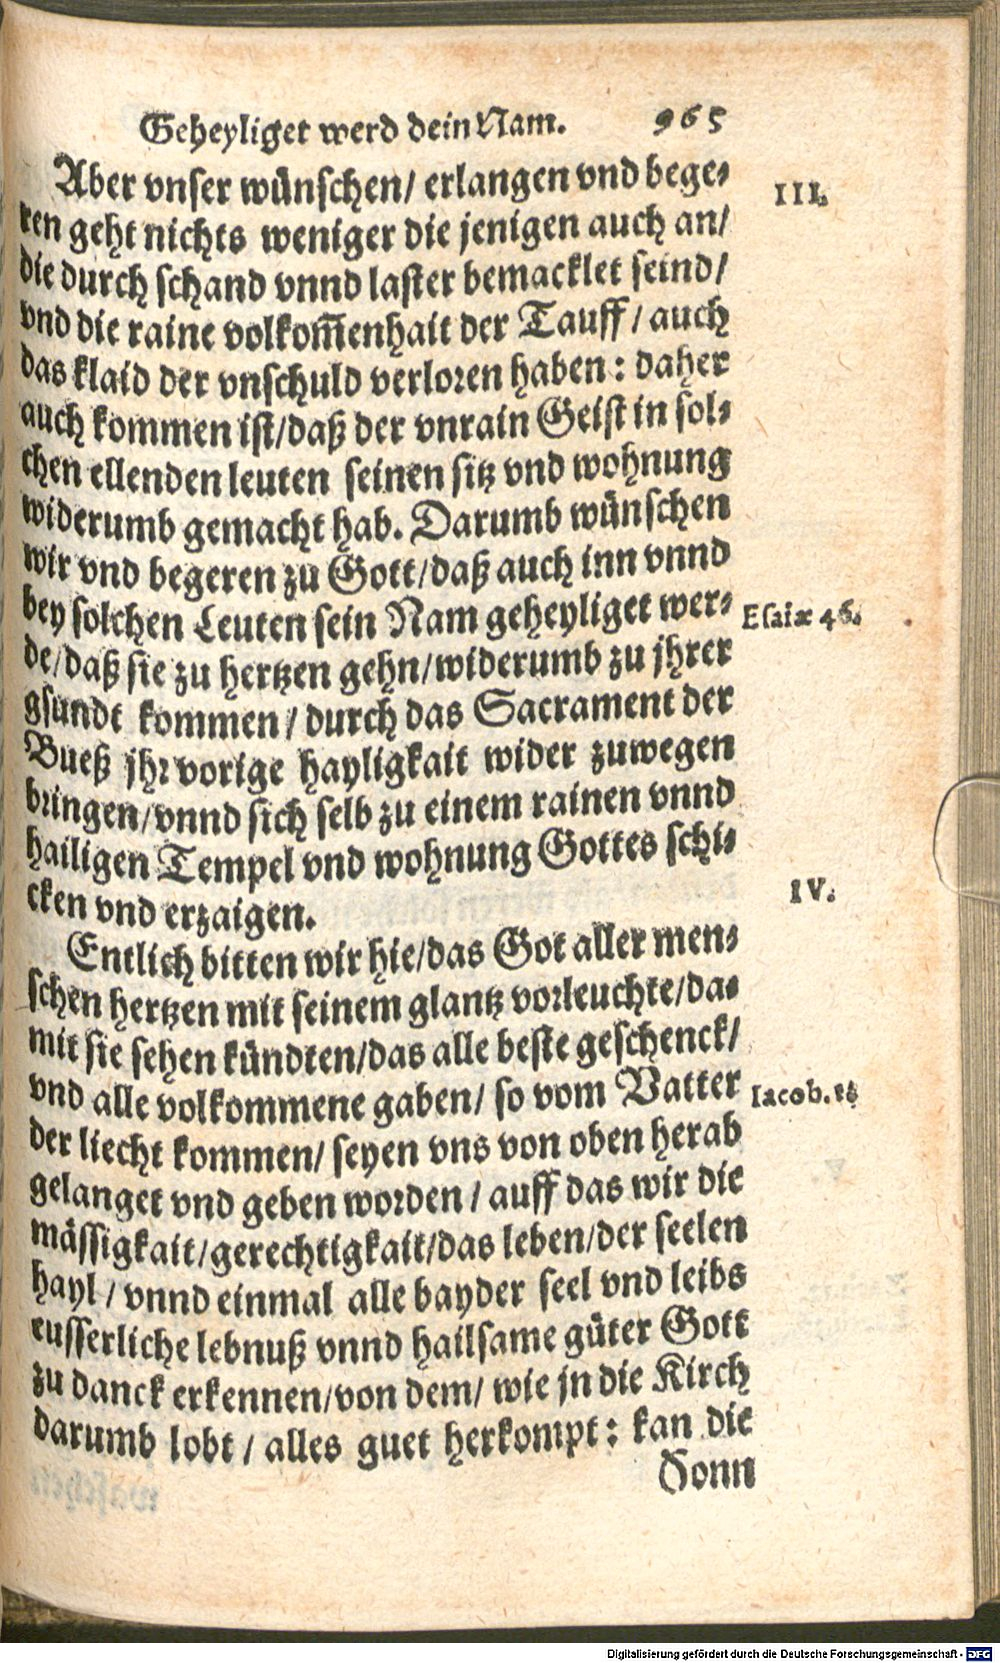 Geheyliget werd dein Nam. 965
Aber vnser wünschen/ erlangen vnd bege-
ren geht nichts weniger die jenigen auch an/
die durch schand vnnd laster bemacklet seind/
vnd die raine volkom̃enhait der Tauff/ auch
das klaid der vnschuld verloren haben: daher
auch kommen ist/daß der vnrain Geist in sol-
chen ellenden leuten seinen sitz vnd wohnung
widerumb gemacht hab. Darumb wünschen
wir vnd begeren zu Gott/daß auch inn vnnd
bey solchen Leuten sein Nam geheyliget wer-
de/daß sie zu hertzen gehn/widerumb zu jhrer
gsundt kommen/ durch das Sacrament der
Bueß jhr vorige hayligkait wider zuwegen
bringen/vnnd sich selb zu einem rainen vnnd
hailigen Tempel vnd wohnung Gottes schi-
cken vnd erzaigen.
Entlich bitten wir hie/das Got aller men-
schen hertzen mit seinem glantz vorleuchte/da-
mit sie sehen kündten/das alle beste geschenck/
vnd alle volkommene gaben/ so vom Vatter
der liecht kommen/ seyen vns von oben herab
gelanget vnd geben worden/ auff das wir die
mässigkait/gerechtigkait/das leben/der seelen
hayl/ vnnd einmal alle bayder seel vnd leibs
eusserliche lebnuß vnnd hailsame güter Gott
zu danck erkennen/von dem/ wie jn die Kirch
darumb lobt/ alles guet herkompt: kan die
Sonn
III.
Esaiæ 46.
IV.
Iacob. 1.
Digitalisierung gefördert durch die Deutsche Forschungsgemeinschaft - DFG